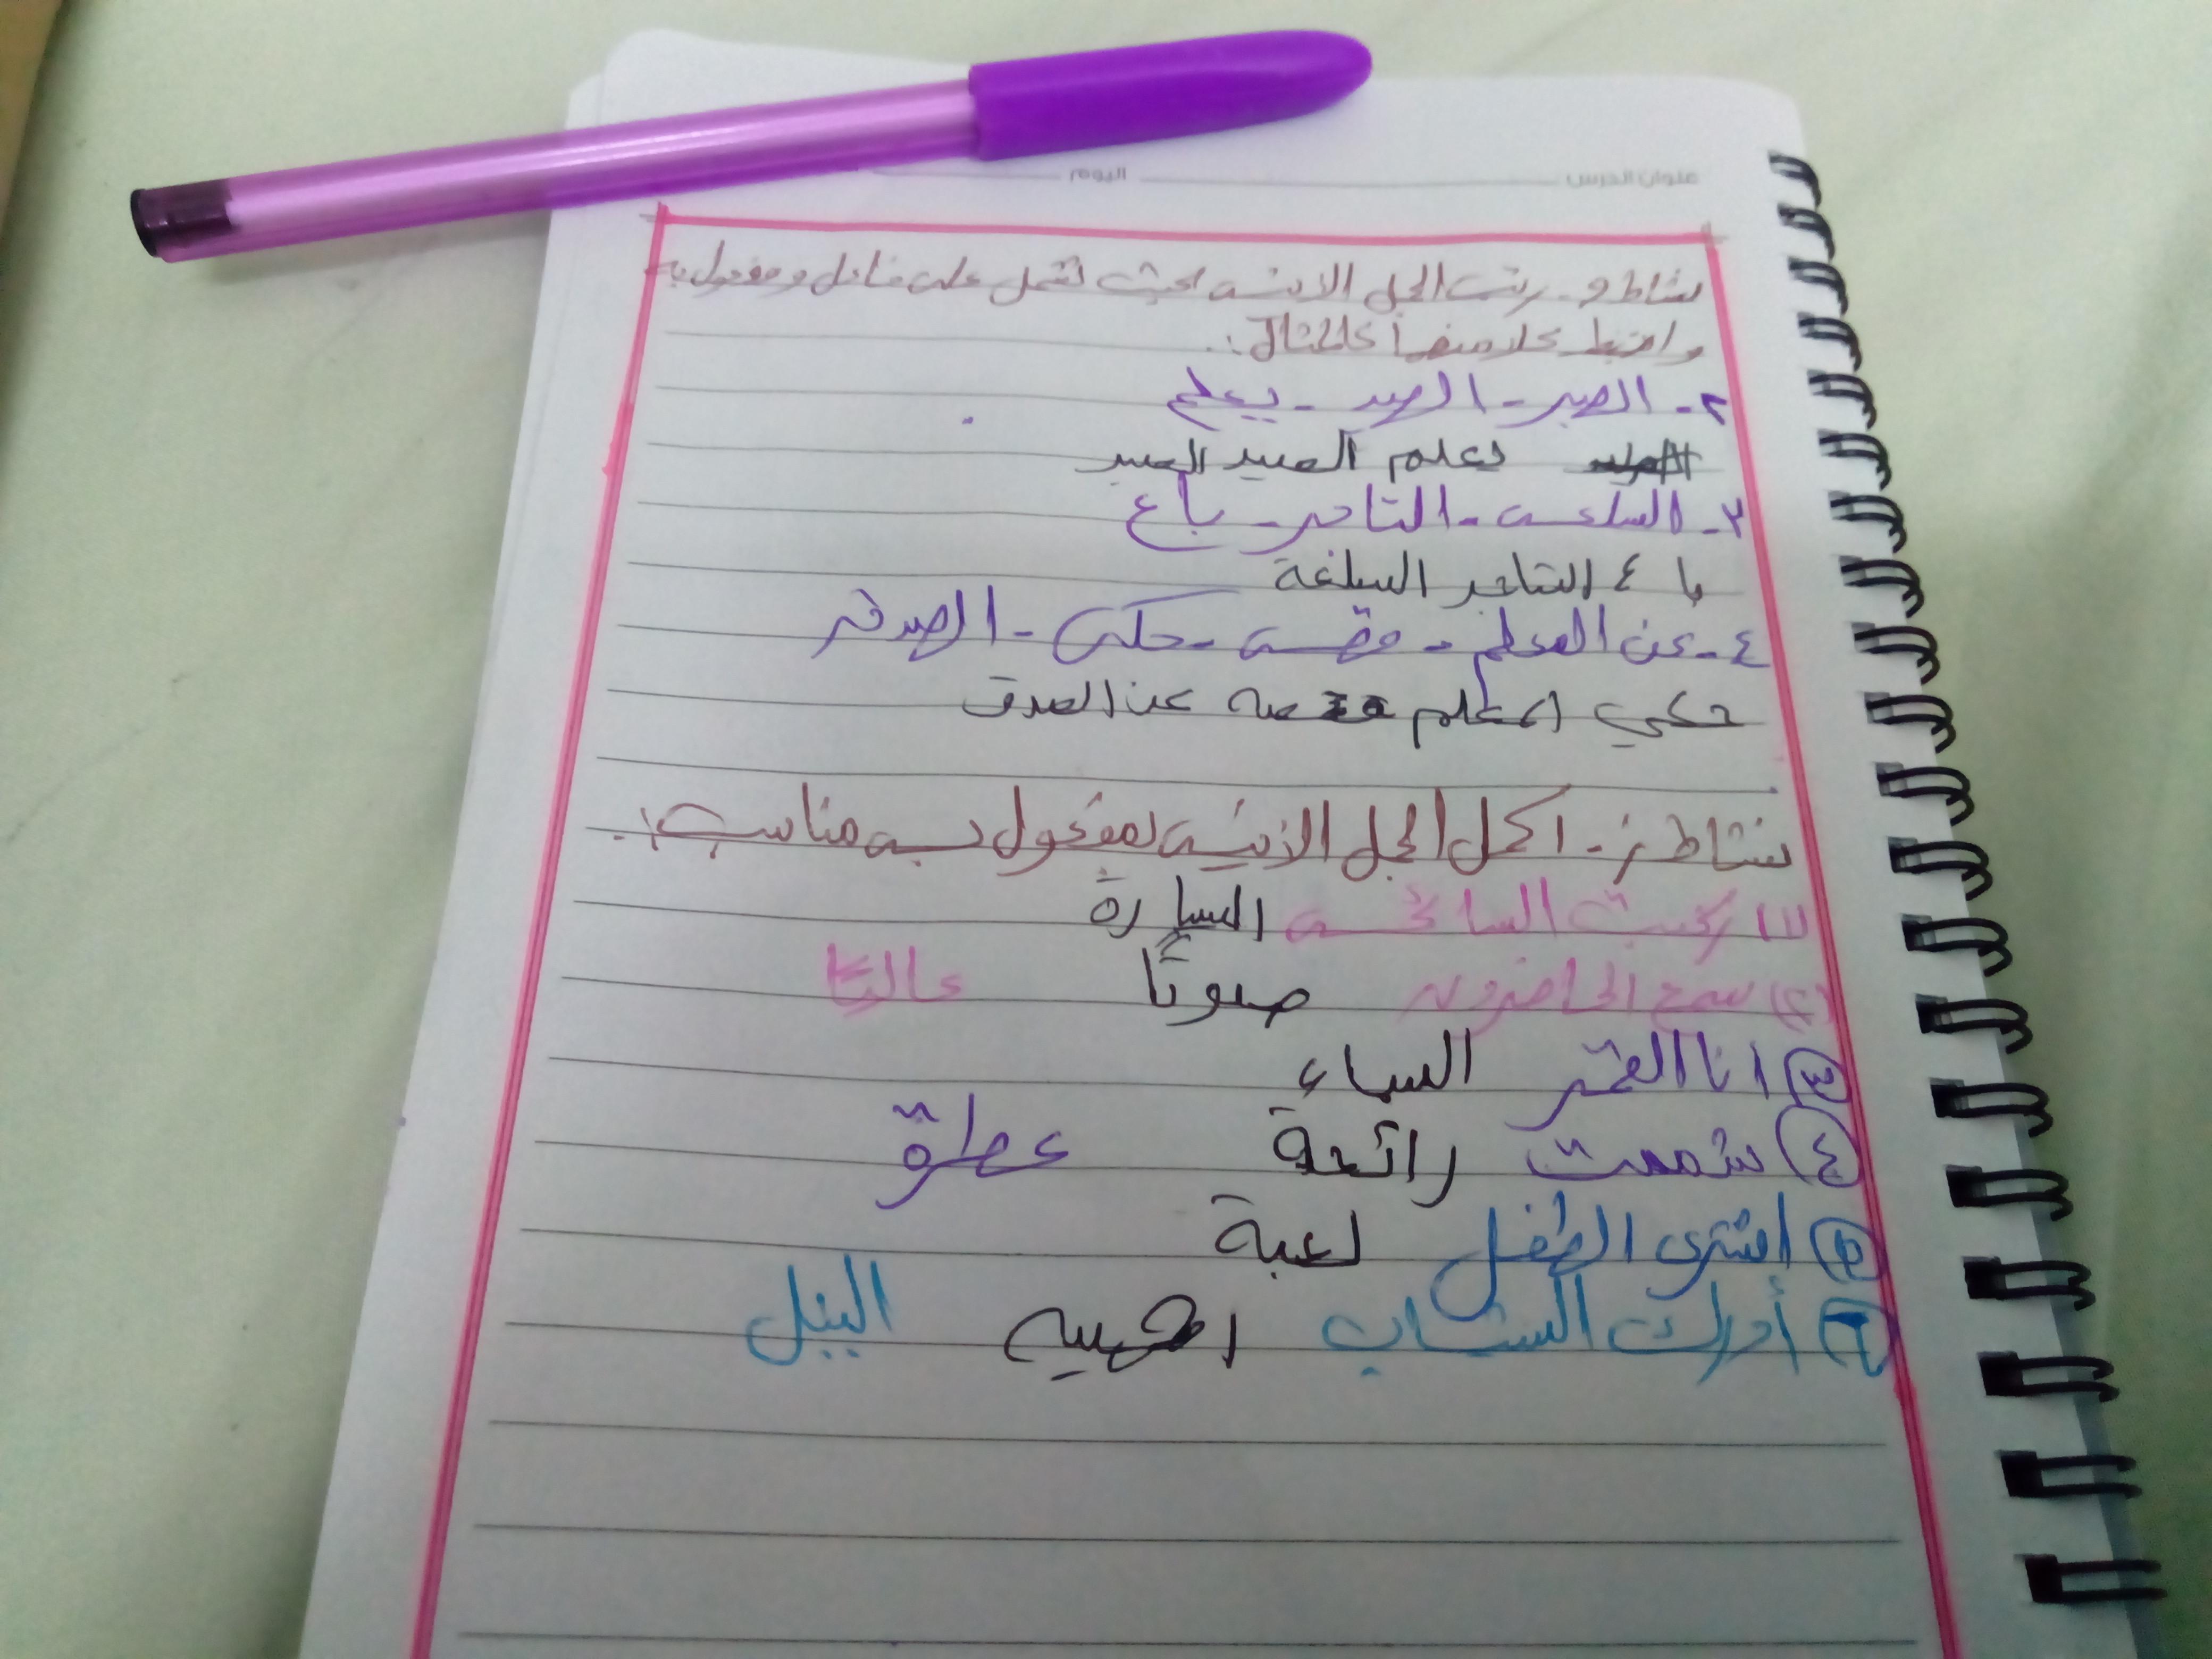 عنوان الدرس اليوم
نشاط و - رتب الجمل الاتية بحيث تشمل على فاعل ومفعول به
واضبط كلا منهما كالمثال :.
٢- الصبر - الصيد - يعلم
يعلم الصيد الصبر
٣- السلعه - التاجر - باع
باع التاجر السلعة
٤- عن المعلم - قصه - حكى - الصدق
حكي المعلم قصه عن الصدق
نشاط ز - اكمل الجمل الاتيه بمفعول به مناسب :.
١) ركبت السائحه السيارة
٢) سمع الحاضرون صوتًا عاليًا
٣ انا القمر السماء
٤ شممت رائحة عطرة
٥ اشترى الطفل لعبة
٦ أدرك الشاب اهميه النيل